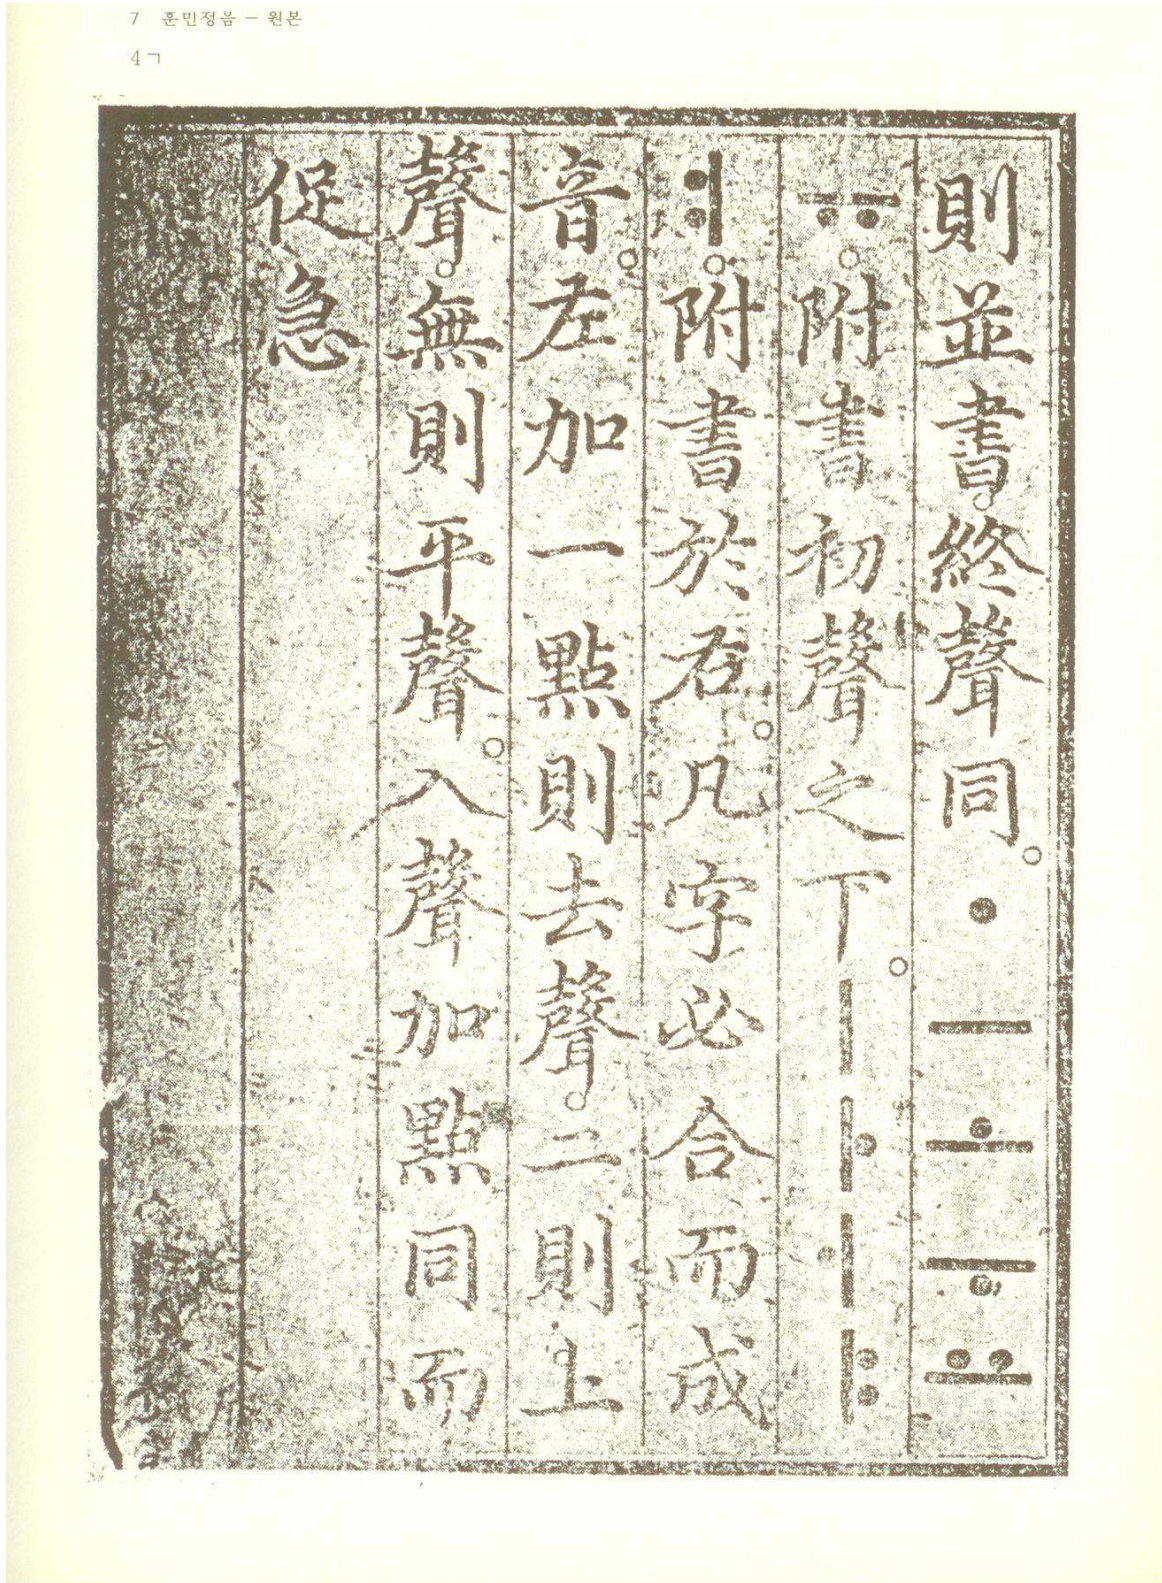 7 훈민정음 — 원본
4ㄱ
則並書。終聲同。ㆍㅡㅗㅜㅛ
ㅠ。附書初聲之下。ㅣㅏㅓㅑ
ㅕ。附書於右。凡字必合而成
音。左加一點則去聲。二則上
聲。無則平聲。入聲加點同而
促急